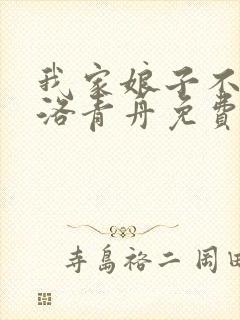 我家娘子不
洛青丹免费
寺島裕二 岡田